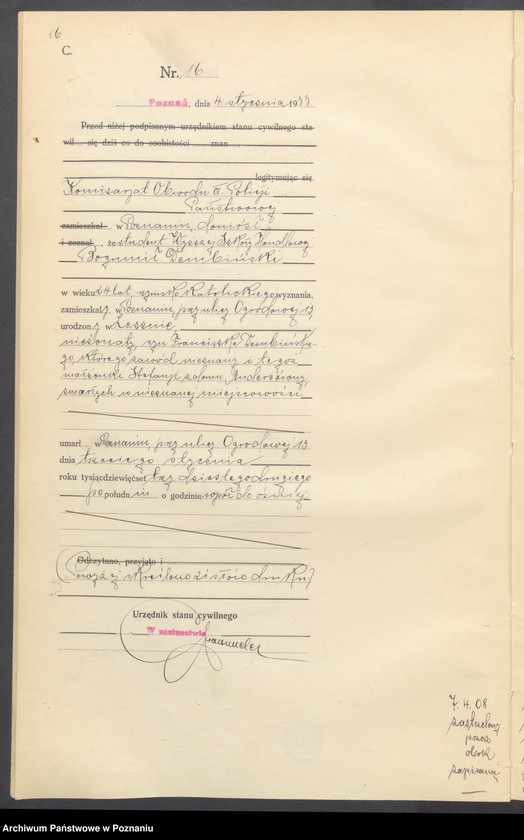 16
C.
Nr. 16
Poznań, dnia 4 stycznia 1933.
Przed niżej podpisanym urzędnikiem stanu cywilnego sta-
wił się dziś co do osobistości znan
legitymując się
Komisarjat Obwodu Policji
Państwowej
zamieszkał w Poznaniu, doniósł
i zeznał, że student Wyższej Szkoły Handlowej
Bogumił Dembiński
w wieku 24 lat, rzymsko katolickiego wyznania,
zamieszkały w Poznaniu, przy ulicy Ogrodowej 13
urodzony w Lesznie,
nieżonaty, syn Franciszka Dembińskie-
go, którego zawód nieznany i tegoż
małżonki Stefanji z domu
zmarłych w nieznanej miejscowości
umarł w Poznaniu, przy ulicy Ogrodowej 13
dnia trzeciego stycznia
roku tysiącdziewięćset trzydziestego
po połudn iu o godzinie wpół do ósmej
Odczytano, przyjęto i
(Powyżej skreślono słów druku)
Urzędnik stanu cywilnego
W zastępstwie
7. 4. 08
przez